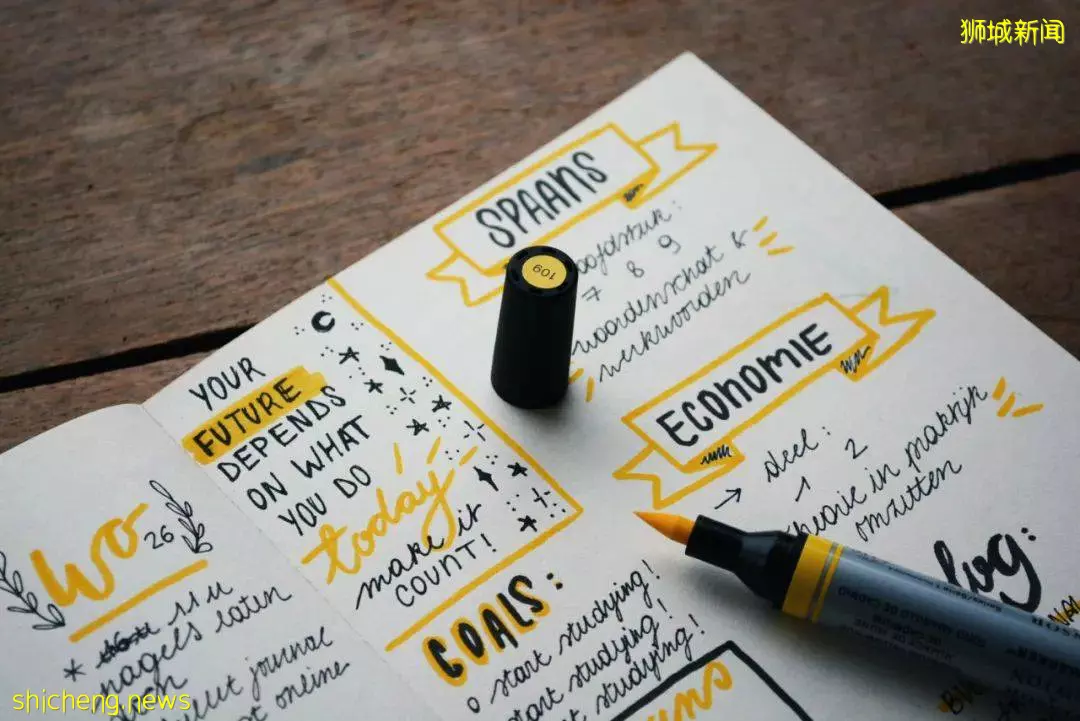 狮城新闻
SPAANS
7 8 9
woordenschat &
werkwoorden
109
ECONOMIE
→ deel:
1 2
theorie in praktijk
omzetten
YOUR
FUTURE
DEPENDS
ON WHAT
YOU DO
today
make it
COUNT!
GOALS:
o start studying!
start studying!
studying!
Wo
26
11 u
* nagels laten
journal
online
log:
shicheng.news